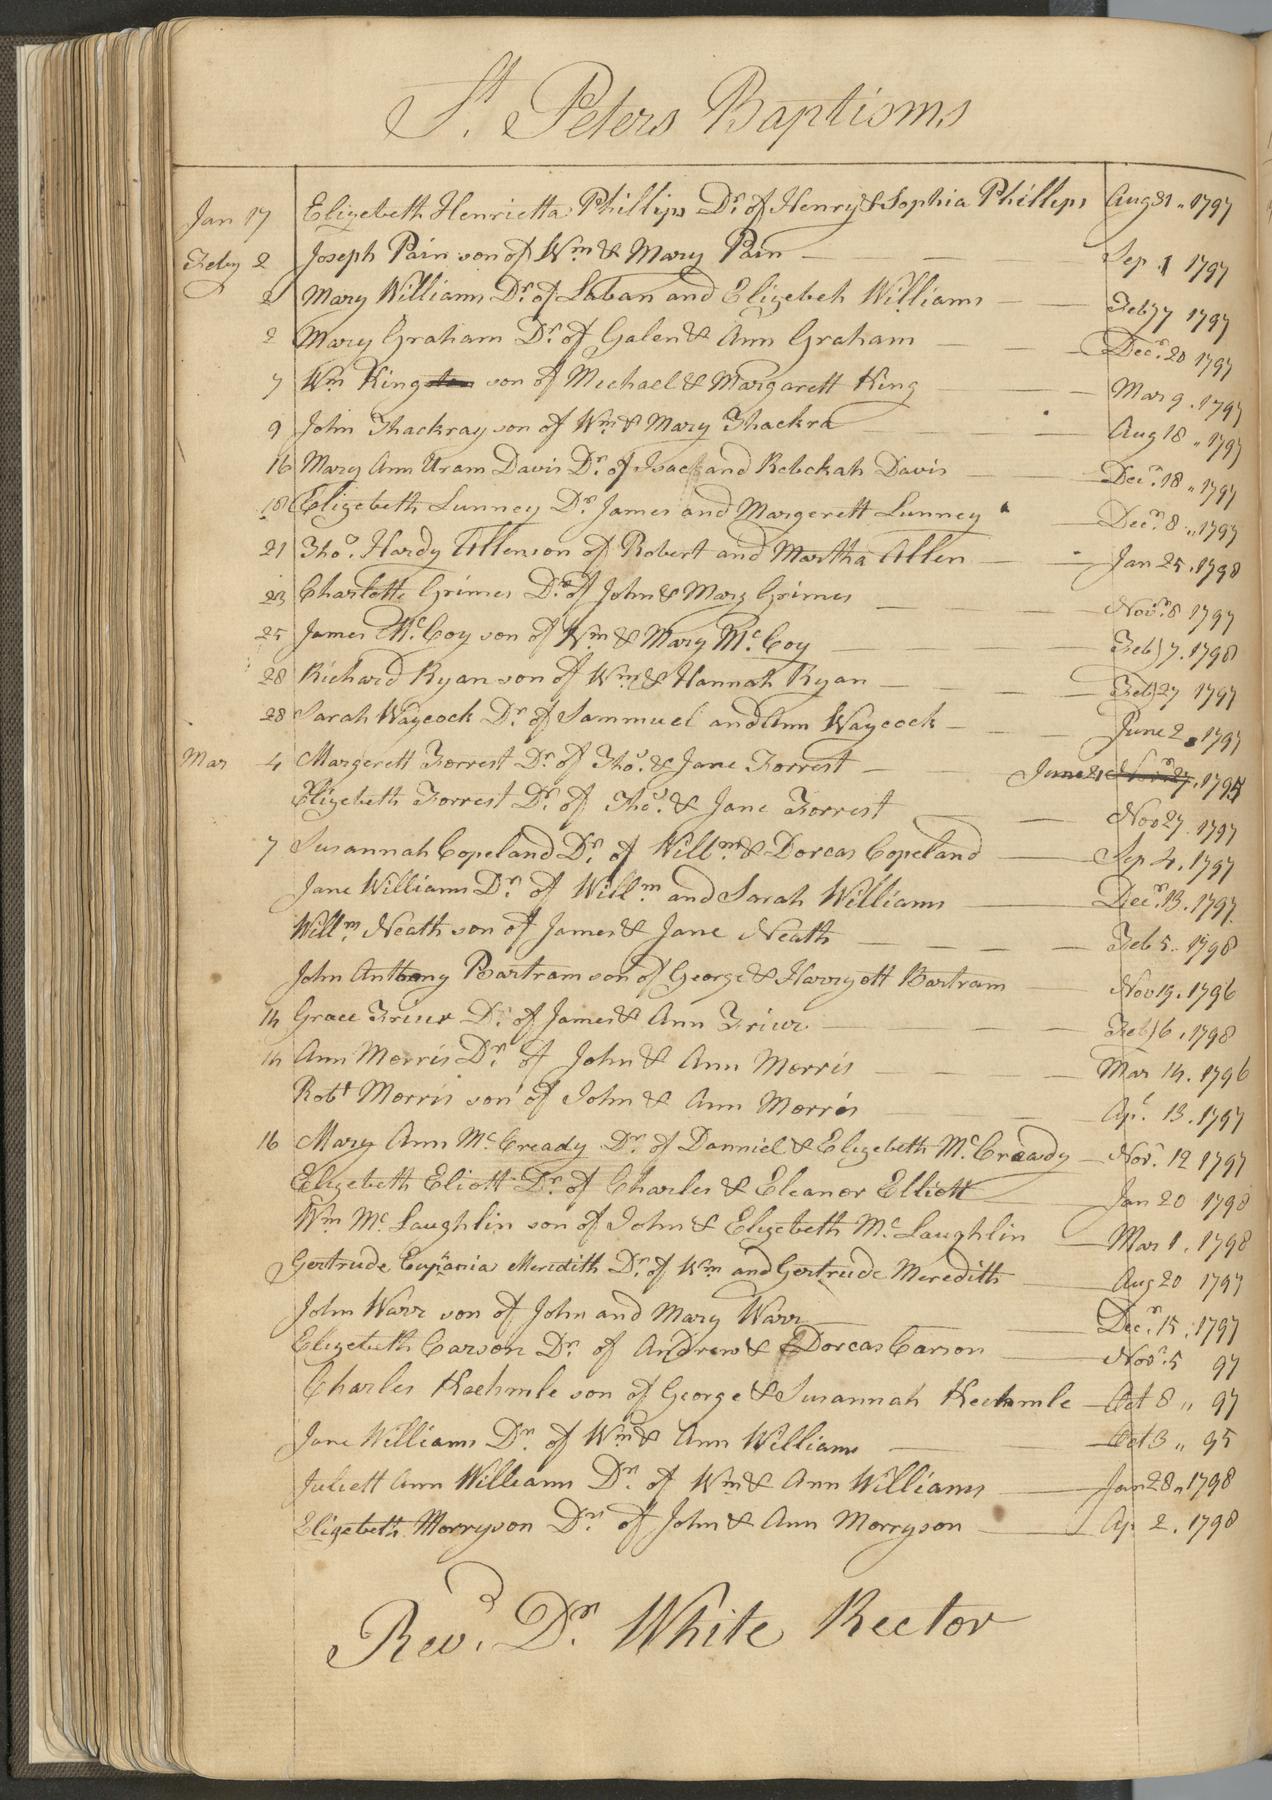 St. Peters Baptisms
Jan 17 Elizebeth Henrietta Phillips Dr. of Henry & Sophia Phillips Aug 31 „ 1797
Feby 2 Joseph Pain son of Wm & Mary Pain Sep. 1 1797
2 Mary Williams Dr. of Laban and Elizebeh Williams Feby 7 1797
2 Mary Graham Dr. of Galen & Ann Graham Decr. 20 1797
7 Wm King son of Mechael & Margarett King Mar 9. 1797
9 John Thackray son of Wm & Mary Thackra Aug 18 „ 1797
16 Mary Ann Uram Davis Dr. of Isac and Rebekah Davis Decr. 18 „ 1797
18 Elizebeth Lunney Dr. James and Margerett Lunney Decr. 8 „ 1797
21 Thos. Hardy Allen son of Robert and Martha Allen Jan 25. 1798
23 Charlotte Grimes Dr. of John & Mary Grimes Novr. 8 1797
25 James McCoy son of Wm & Mary McCoy Feby 7. 1798
28 Richard Ryan son of Wm & Hannah Ryan Feby 27 1797
28 Sarah Waycock Dr. of Sammuel and Ann Waycock June 2. 1797
Mar 4 Margerett Forrest Dr. of Thos. & Jane Forrest June 21 1795
Elizebeth Forrest Dr. of Thos. & Jane Forrest Nov 27 1797
7 Susannah Copeland Dr. of Willm. & Dorcas Copeland Sep 4. 1797
Jane Williams Dr. of Willm. and Sarah Williams Decr. 13. 1797
Willm. Neath son of James & Jane Neath Feb 5. 1798
John Anthony Bartram son of George & Harryott Bartram Nov 19. 1796
14 Grace Friur Dr. of James & Ann Friur Feby 6. 1798
14 Ann Morris Dr. of John & Ann Morris Mar 14. 1796
Robt Morris son of John & Ann Morris Apl. 13. 1797
16 Mary Ann McCready Dr. of Danniel & Elizebeth McCready Novr. 12 1797
Elizebeth Eliott Dr. of Charles & Eleanor Elliott Jan 20 1798
Wm McLaughlin son of John & Elizebeth McLaughlin Mar 1. 1798
Gertrude Meredith Dr. of Wm and Gertrude Meredith Aug 20 1797
John Warr son of John and Mary Warr Decr. 15. 1797
Elizebeth Carson Dr. of Andrew & Dorcas Carson Novr. 5 97
Charles Kaehmle son of George & Susannah Keehmle Oct 8 „ 97
Jane Williams Dr. of Wm & Ann Williams Oct 3 „ 95
Juliett Ann Williams Dr. of Wm & Ann Williams Jan 28 „ 1798
Elizebeth Morryson Dr. of John & Ann Morryson Ap 2. 1798
Revd. Dr. White Rector